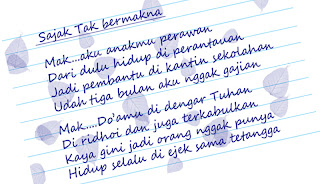 Sajak Tak bermakna
Mak...aku anakmu perawan
Dari dulu hidup di perantauan
Jadi pembantu di kantin sekolahan
Udah tiga bulan aku nggak gajian
Mak....Do'amu di dengar Tuhan
Di ridhoi dan juga terkabulkan
Kaya gini jadi orang nggak punya
Hidup selalu di ejek sama tetangga